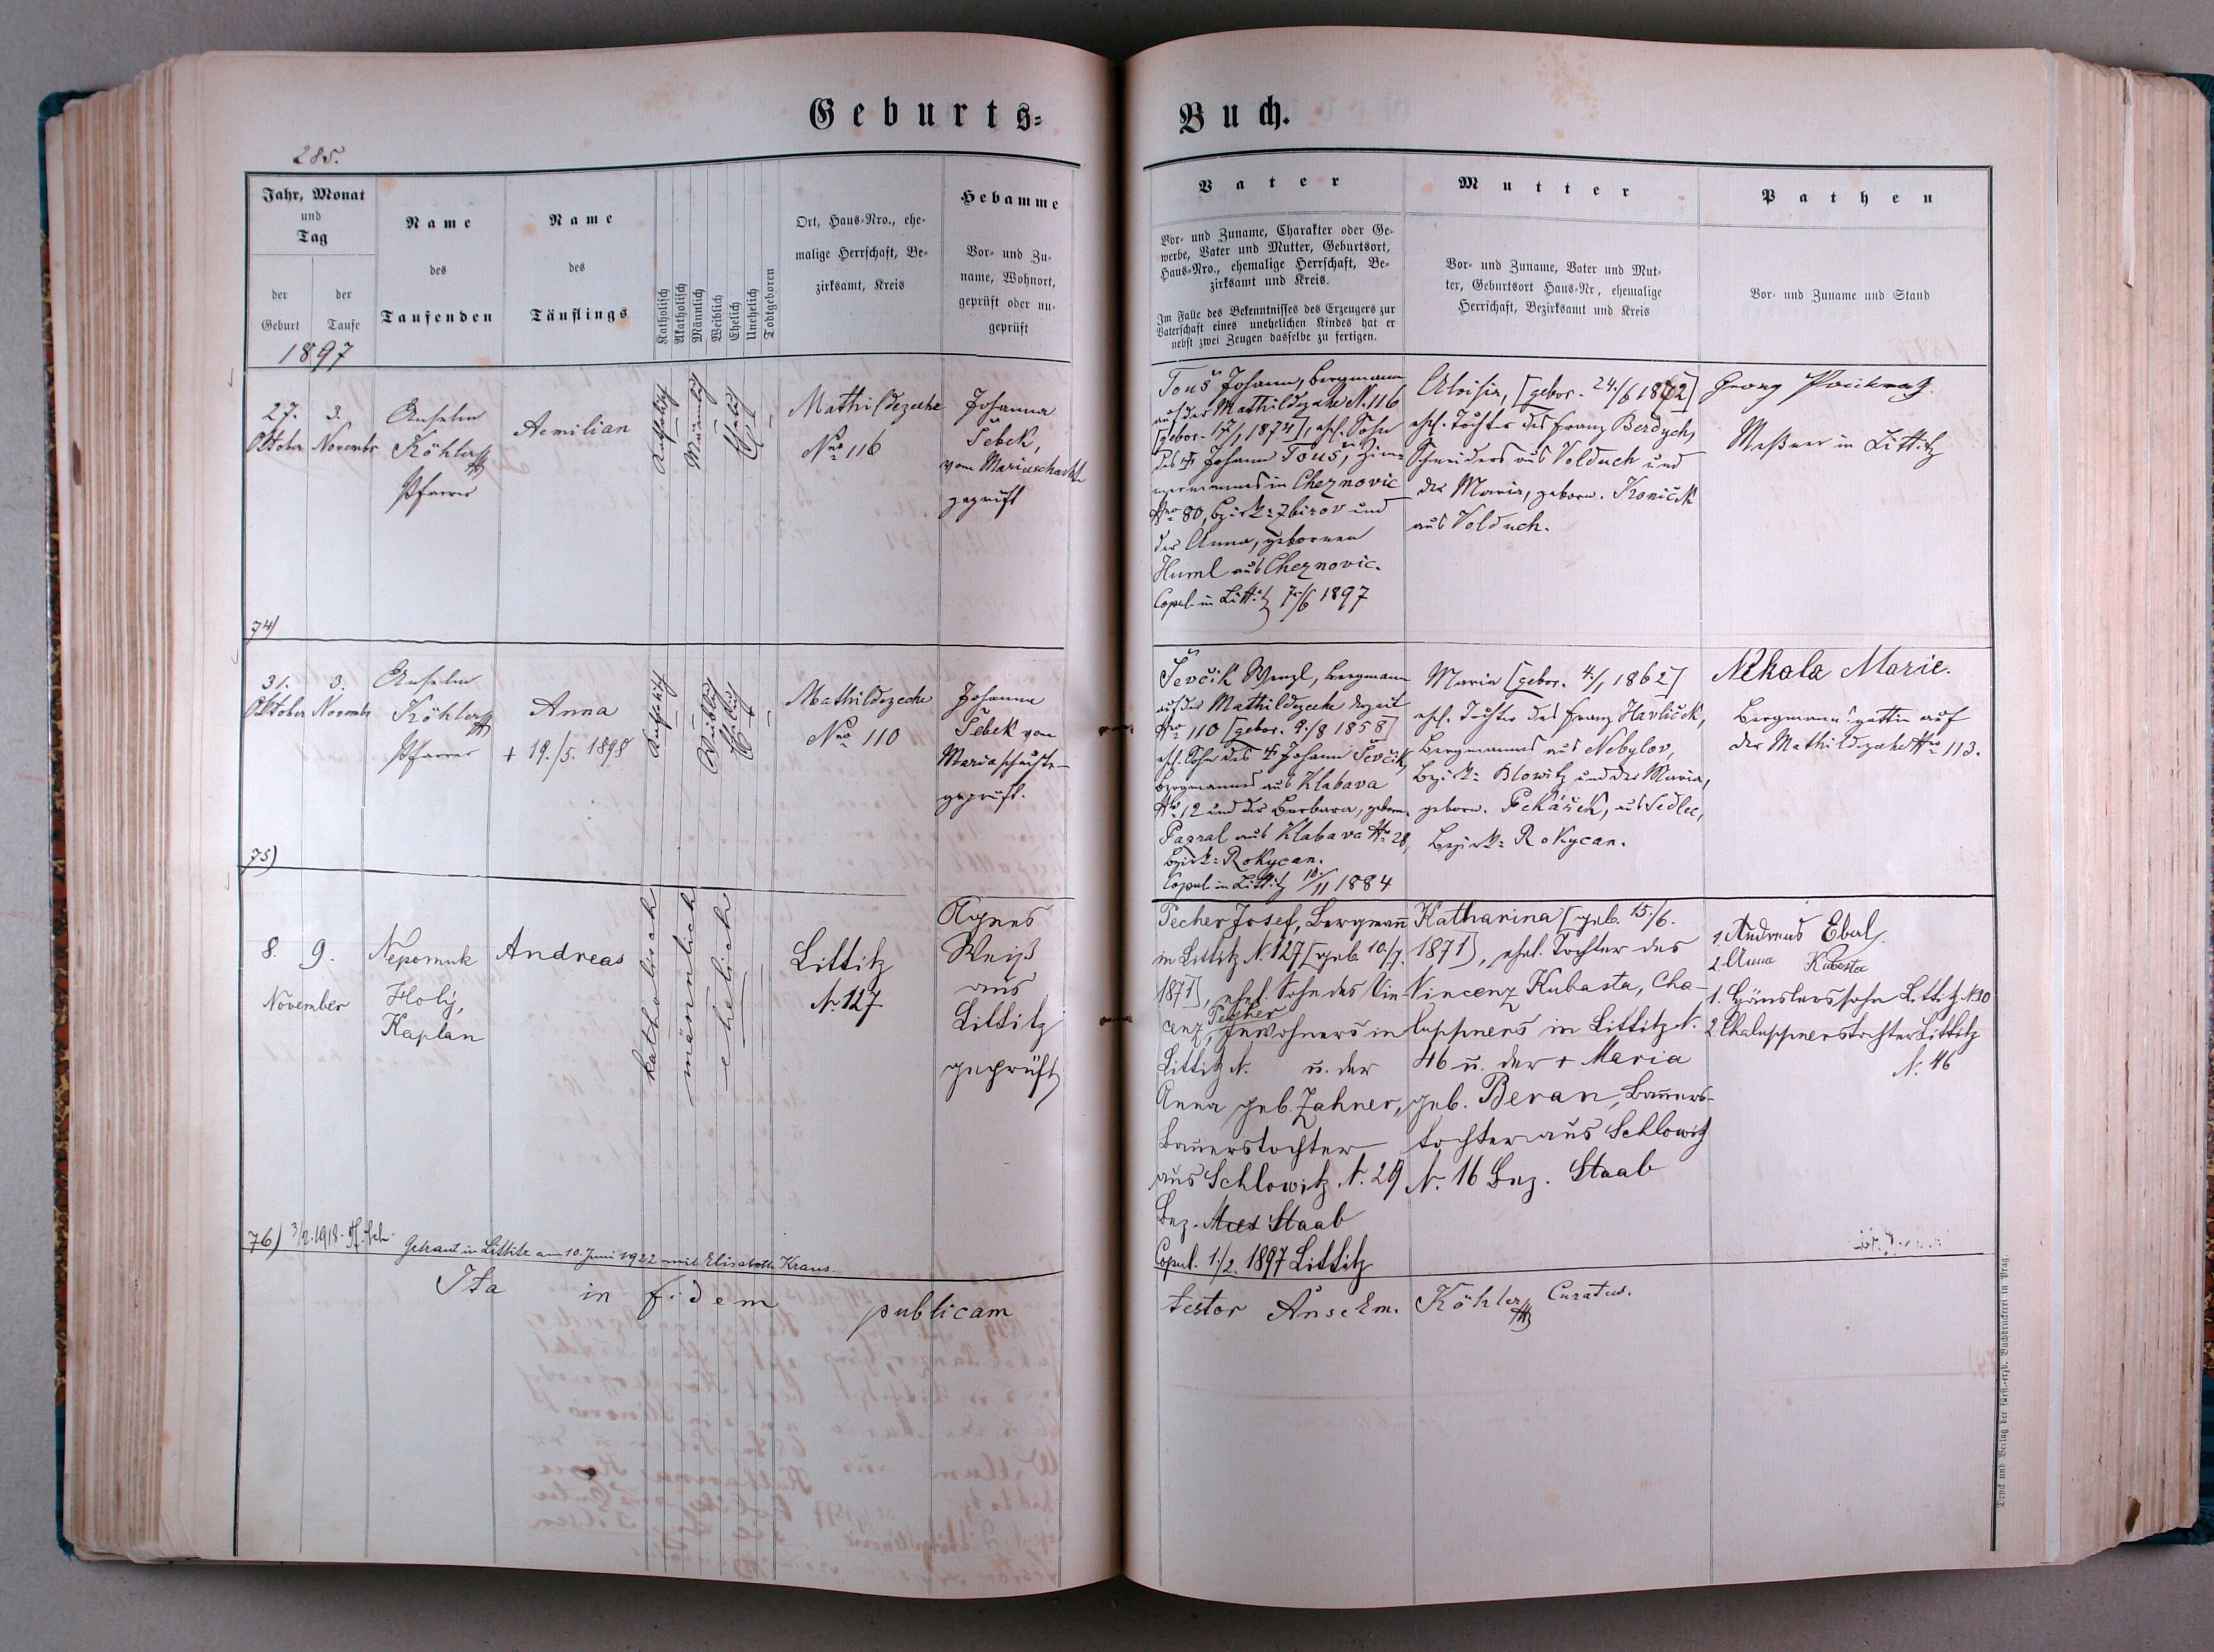 Geburts=
Buch.
285.
Jahr, Monat
und
Tag
der
Geburt
der
Taufe
1897
Name
des
Taufenden
Name
des
Täuflings
Katholisch
Akatholisch
Männlich
Weiblich
Ehelich
Unehelich
Todtgeboren
Ort, Haus-Nro., ehe-
malige Herrschaft, Be-
zirksamt, Kreis
Hebamme
Vor- und Zu-
name, Wohnort,
geprüft oder nu-
geprüft
Vater
Vor- und Zuname, Charakter oder Ge-
werbe, Vater und Mutter, Geburtsort,
Haus-Nro., ehemalige Herrschaft, Be-
zirksamt und Kreis.
Im Falle des Bekenntnisses des Erzeugers zur
Vaterschaft eines unehelichen Kindes hat er
nebst zwei Zeugen dasselbe zu fertigen.
Mutter
Vor- und Zuname, Vater und Mut-
ter, Geburtsort Haus-Nr, ehemalige
Herrschaft, Bezirksamt und Kreis
Pathen
Vor- und Zuname und Stand
27.
Oktober
3.
Novembr
Anselm
Köhler
Pfarrer
Aemilian
Katholisch
Männlich
Ehelich
Mathildezeche
Nro 116
Johanna
Šebek,
vom Mariaschachte
geprüft
Touš Johann, Bergmann
auf der Mathildezeche N. 116
[gebor. 17/1 1874], ehl. Sohn
des † Johann Touš, Zim-
mermannes in Cheznovic
Nro 80, Bezirk: Zbirov und
der Anna, gebornen
Huml aus Cheznovic.
Copul. in Littitz 7/6 1897
Aloisia, [gebor. 24./6 1872]
ehl. Tochter des Franz Berdych,
Schneiders aus Volduch und
der Maria, geborn. Koníček
aus Volduch.
Georg
Meßner in Littitz
74)
31.
Oktober
3.
Novembr
Anselm
Köhler
Pfarrer
Anna
+ 19./5. 1898
Katholisch
Weiblich
Ehelich
Mathildezeche
Nro 110
Johanna
Šebek vom
Mariaschachte
geprüft.
Ševčik Wenzl, Bergmann
auf der Mathildezeche derzeit
Nro 110 [gebor. 9./8 1858]
ehl. Sohn des † Johann Ševčik,
Bergmannes aus Klabava
Nro 12 und der Barbara, geborn.
Pagral aus Klabava Nro 28,
Bezirk: Rokycan.
Copul. in Littitz 10./11 1884
Maria [gebor. 4./1 1862]
ehl. Tochter des Franz Havlíček,
Bergmannes aus Nebylov,
Bezirk: Blowitz und der Maria,
geborn. Pekárek, aus Sedlec,
Bezirk: Rokycan.
Nekola Marie.
Bergmannsgattin auf
der Mathildezeche Nro 113.
75)
8.
9.
November
Nepomuk
Holý,
Kaplan
Andreas
katholisch
männlich
ehelich
Littitz
N. 127
Agnes
Weiß
aus
Littitz
geprüft
Pecher Josef, Bergmann
in Littitz N. 127 [geb. 10/7.
1871], ehel. Sohn des Vin-
cenz Pecher, Inwohners in
Littitz N. u. der
Anna geb. Zahner,
Bauerstochter
aus Schlowitz N. 29
Bez. Mies Staab
Copul. 1./2. 1897 Littitz
Katharina [geb. 15./6.
1871], ehel. Tochter des
Vincenz Kubasta, Cha-
luppners in Littitz N.
46 u. der + Maria
geb. Beran, Bauers-
tochter aus Schlowitz
N. 16 Bez. Staab
1. Andreas Eberl
2. Anna Kubasta
1. Häuslerssohn Littitz N. 30
2. Chaluppnerstochter Littitz
N. 46
76) 3/2. 1918.
Getraut in Littitz am 10. Juni 1922 mit Elisabeth Kraus.
Ita in fidem publicam
testor Anselm. Köhler Curatus.
Druck und Verlag der fürst.-erzb. Buchdruckerei in Prag.